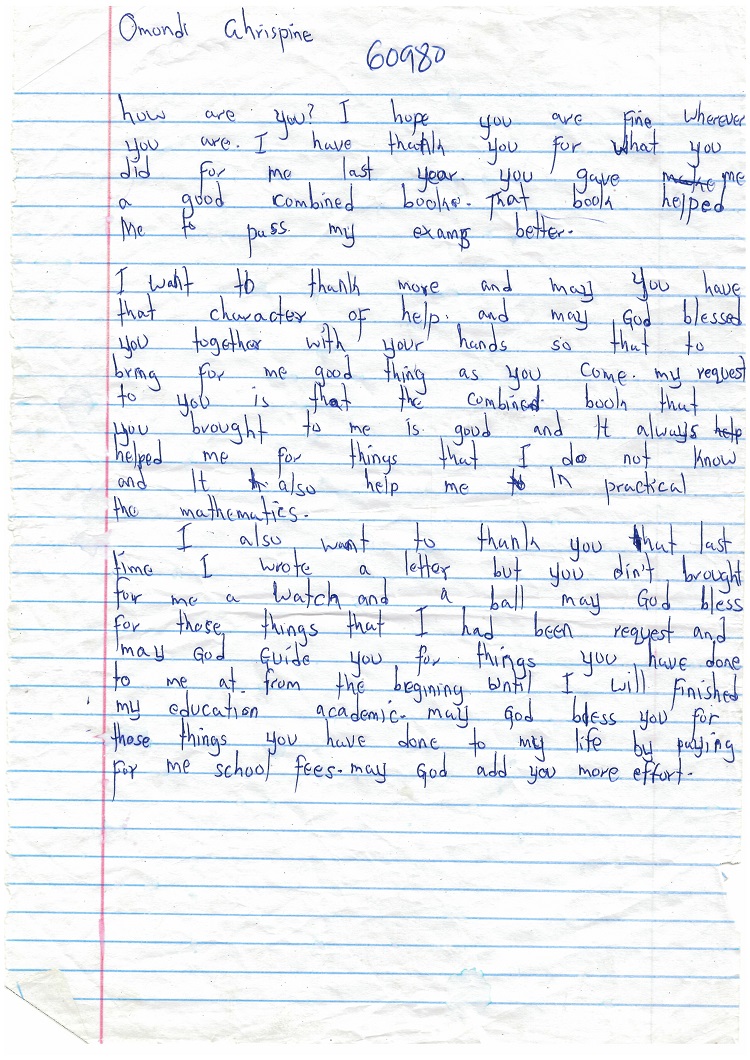 Omondi Chrispine
60980
how are you? I hope you are fine wherever
you are. I have thank you for what you
did for me last year. you gave me
a good combined books. That book helped
Me to pass my exams better.
I want to thank more and may you have
that character of help. and may God blessed
you together with your hands so that to
bring for me good thing as you come. my request
to you is that the combined book that
you brought to me is good and It always
helped me for things that I do not know
and It also help me In practical
the mathematics.
I also want to thank you that last
time I wrote a letter but you din't brought
for me a watch and a ball may God bless
for those things that I had been request and
may God Guide you for things you have done
to me at from the begining until I will finished
my education academic. may God bless you for
those things you have done to my life by paying
for me school fees. may God add you more effort.